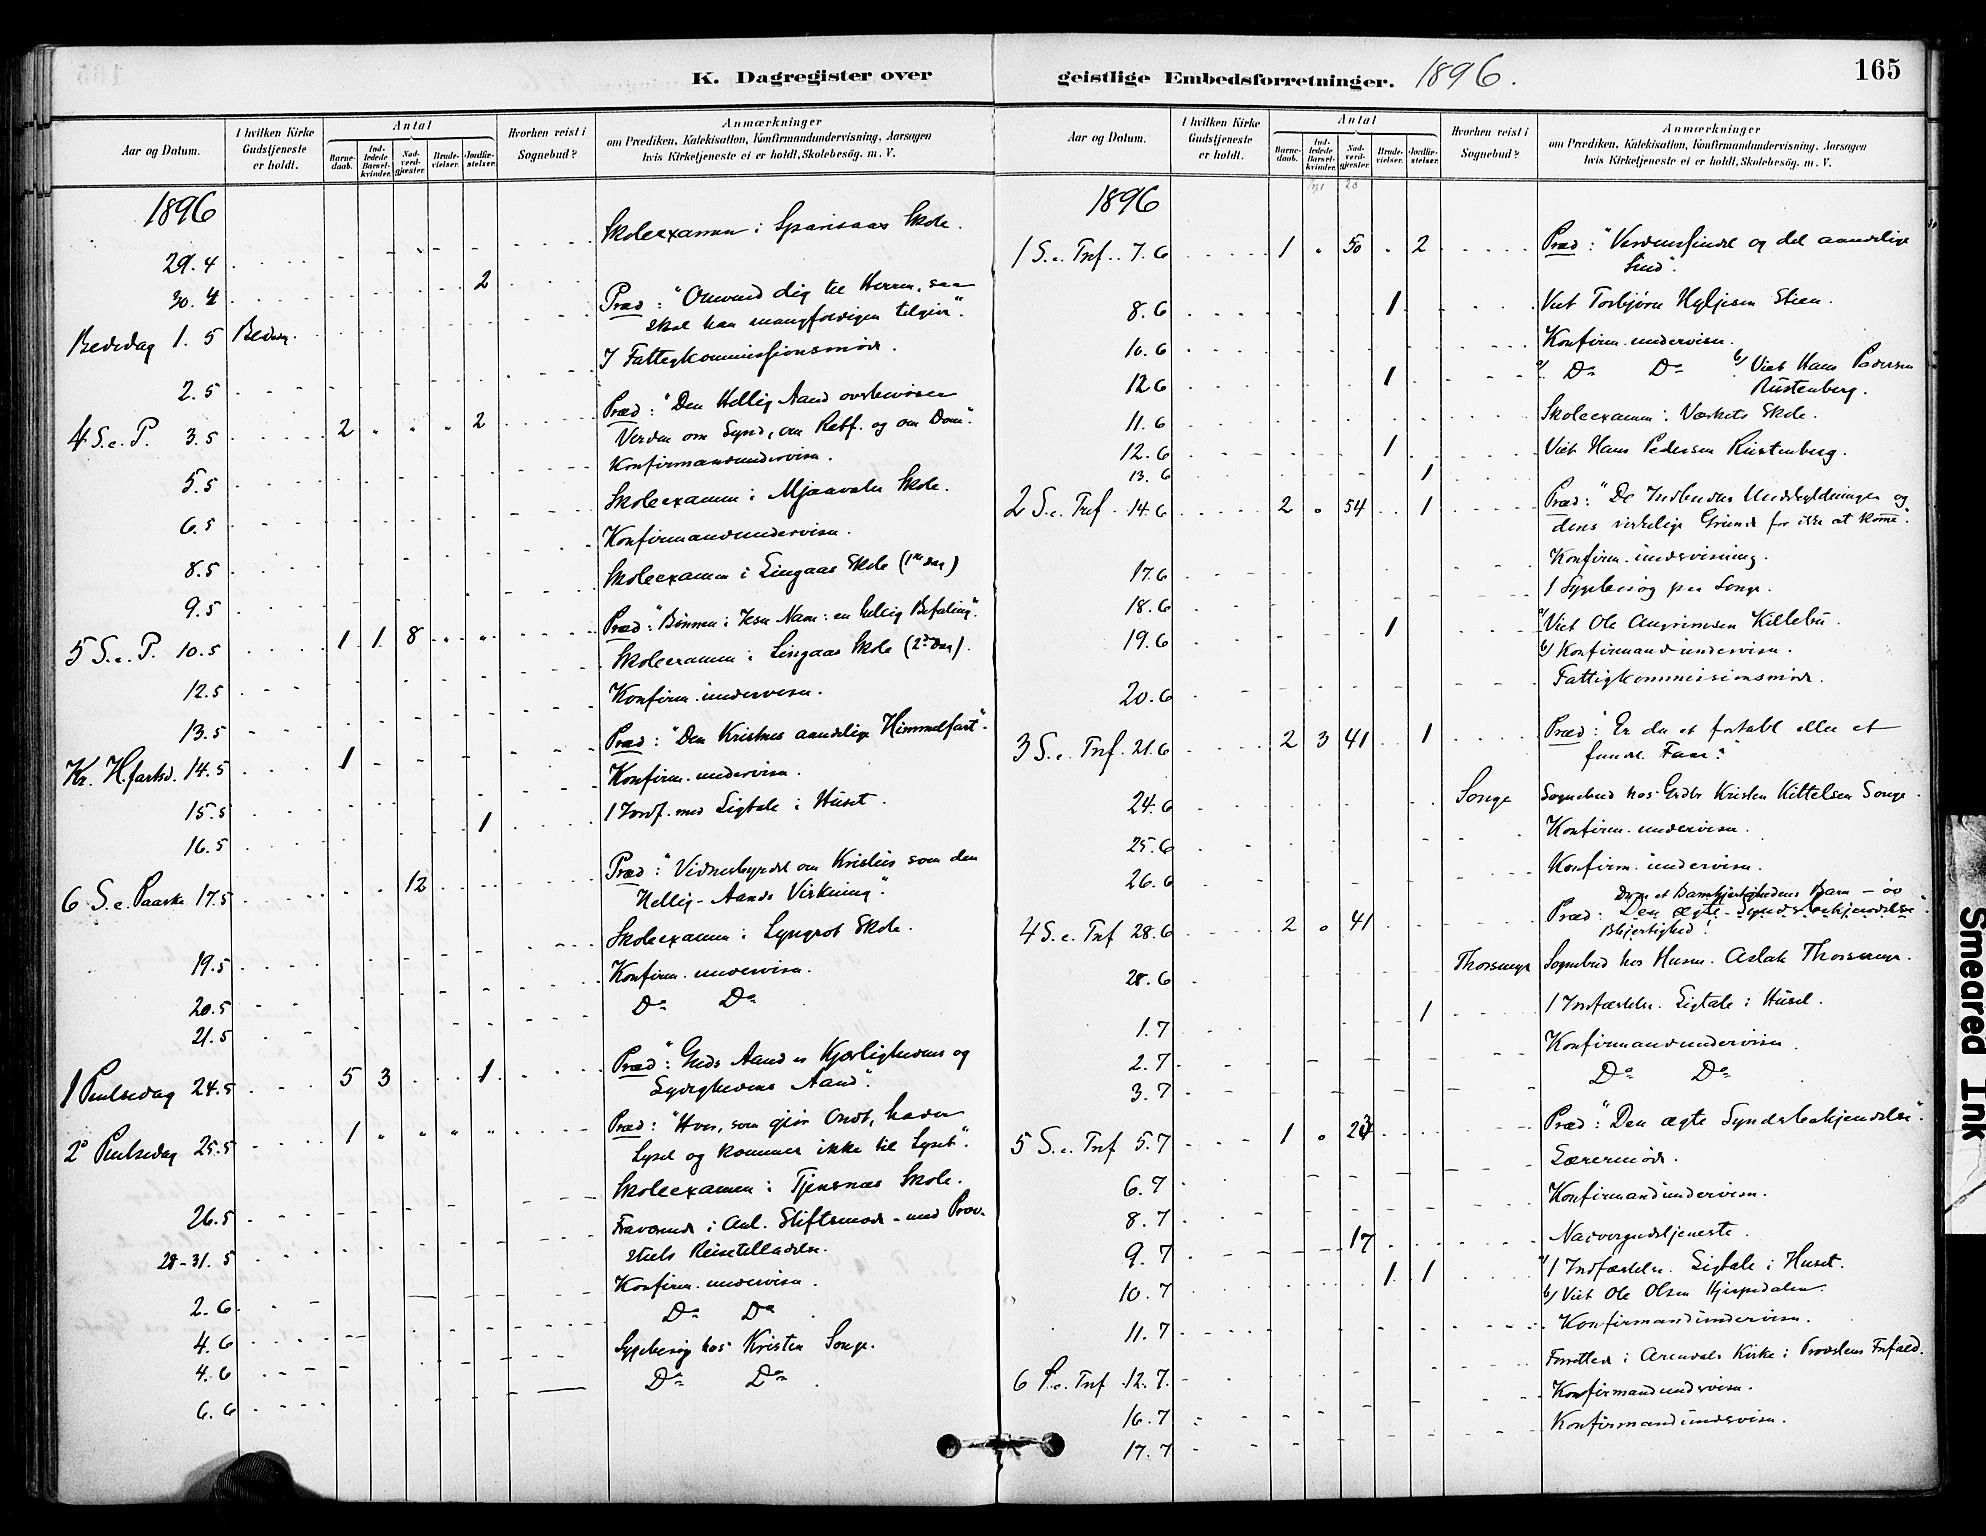 K. Dagregister over geistlige Embedsforretninger. 1896. 165
Aar og Datum.
I hvilken Kirke Gudstjeneste er holdt.
Antal
Barnedaab.
Indledede Barselkvinder.
Nadverdgjester.
Brudevielser.
Jordfæstelser.
Hvorhen reist i Sognebud?
Anmærkninger
om Prædiken, Katekisation, Konfirmandundervisning, Aarsagen
hvis Kirketjeneste ei er holdt, Skolebesøg. m. V.
1896
29.4 Skoleexamen i Skole.
30.4 2
Bededag 1.5 Præd: "Omvend dig til Herren, saa
skal han mangfoldigen tilgive".
2.5 I Fattigkommissionsmøde.
4 S. e. P. 3.5 2 " " " 2 Præd: "Den Hellig Aand overbeviser
Verden om Synd, om Retf. og om Dom".
5.5 Konfirmandundervisn.
6.5 Skoleexamen i Mjaavatn Skole.
8.5 Konfirmandundervisn.
9.5 Skoleexamen i Lingaas Skole (1ste Dag)
5 S. e. P. 10.5 1 1 8 " " Præd: "Bønnen i Jesu Navn: en hellig Befaling".
12.5 Skoleexamen i Lingaas Skole (2den Dag).
13.5 Konfirm. undervisn.
Kr. H.fartsd. 14.5 1 Præd: "Den Kristnes aandelige Himmelfart".
15.5 Konfirm. undervisn.
16.5 1 1 Jordf. med Ligtale i Huset.
6 S. e. Paaske 17.5 12 Præd: "Vidnesbyrdet om Kristus som den
Hellig-Aands Virkning".
19.5 Skoleexamen i Lyngrot Skole.
20.5 Konfirm. undervisn.
21.5 Do Do
1 Pintsedag 24.5 5 3 1 Præd: "Guds Aand er Kjærlighedens og
Lydighedens Aand".
2den Pintsedag 25.5 1 " " " " Præd: "Hver, som gjør Ondt, hader
Lyset og kommer ikke til Lyset".
26.5 Skoleexamen i Tjensnæs Skole.
28-31.5 Fravænde i Anl. Stiftsmøde - med Prov-
stiets Reisetilladelse.
2.6 Konfirm. undervisn.
4.6 Do Do
4.6 Sygebesøg hos Kristen Songe.
6.6 Do Do
Aar og Datum.
I hvilken Kirke Gudstjeneste er holdt.
Antal
Barnedaab.
Indledede Barselkvinder.
Nadverdgjester.
Brudevielser.
Jordfæstelser.
Hvorhen reist i Sognebud?
Anmærkninger
om Prædiken, Katekisation, Konfirmandundervisning, Aarsagen
hvis Kirketjeneste ei er holdt, Skolebesøg. m. V.
1896
1 S. e. Tref. 7.6 1 " 50 " 2 Præd: "Verdenssindet og det aandelige
Sind".
8.6 1 Viet Torbjørn Stien.
10.6 Konfirm. undervisn.
12.6 1 a/ Do Do b/ Viet Hans Pedersen
Rustenberg.
11.6 Skoleexamen i Værkets Skole.
12.6 1 Viet Hans Pedersen Rustenberg.
13.6 1
2 S. e. Tref. 14.6 2 " 54 1 Præd: "De Indbudnes Undskyldninger og
dens virkelige Grunde for ikke at komme".
17.6 Konfirm. undervisning.
18.6 1 Sygebesøg paa Songe.
19.6 1 a/ Viet Ole Killebu.
b/ Konfirmandundervisn.
20.6 Fattigkommissionsmøde.
3 S. e. Tref. 21.6 2 3 41 1 Præd: "Er du et fortabt eller et
fundet Faar?"
24.6 Songe Sognebud hos Grdbr Kristen Kittelsen Songe.
25.6 Konfirm. undervisn.
26.6 Konfirm. undervisn.
4 S. e. Tref 28.6 2 " 41 Præd: Den ægte Syndsbekjendelse".
28.6 Thorsmyr Sognebud hos Husm. Aslak Thorsmyr.
1.7 1 1 Jordfæstelse. Ligtale i Huset.
2.7 Konfirmandundervisn
3.7 Do Do
5 S. e. Tref 5.7 1 " Præd: "Den ægte Syndsbekjendelse".
6.7 Lærermøde.
8.7 Konfirmandundervisn.
9.7 17 Nadvergudstjeneste.
10.7 1 1 a/ 1 Jordfæstelse. Ligtale i Huset.
b/ Viet Ole Olsen
11.7 Konfirmandundervisn.
6 S. e. Tref. 12.7. Forrettede i Arendals Kirke i Provstens Forfald.
16.7 Konfirmandundervisn.
17.7 Konfirmandundervisn.
Smeared Ink